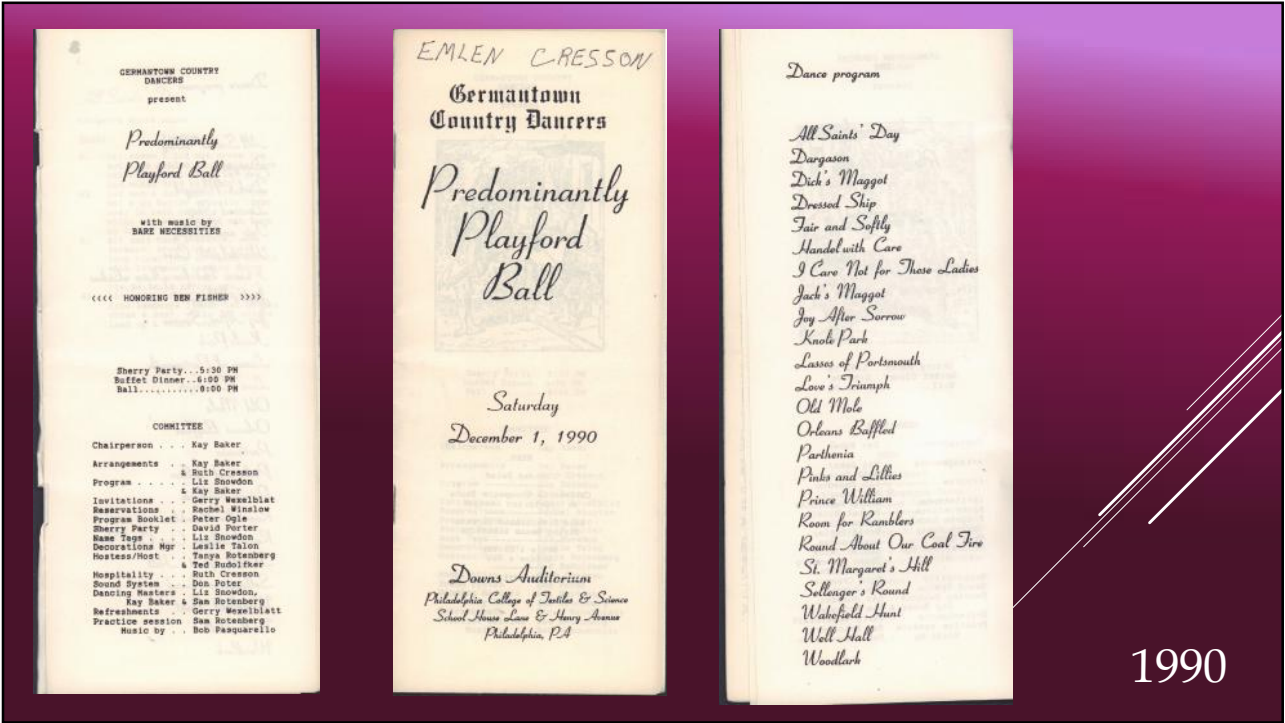 GERMANTOWN COUNTRY
DANCERS
present
Predominantly
Playford Ball
with music by
BARE NECESSITIES
<<<< HONORING BEN FISHER >>>>
Sherry Party...5:30 PM
Buffet Dinner..6:00 PM
Ball...........8:00 PM
COMMITTEE
Chairperson . . . Kay Baker
Arrangements . . Kay Baker
& Ruth Cresson
Program . . . . . Liz Snowdon
& Kay Baker
Invitations . . . Gerry Wexelblat
Reservations . . Rachel Winslow
Program Booklet . Peter Ogle
Sherry Party . . David Porter
Name Tags . . . . Liz Snowdon
Decorations Mgr . Leslie Talon
Hostess/Host . . Tanya Rotenberg
& Ted Rudolfker
Hospitality . . . Ruth Cresson
Sound System . . Don Poter
Dancing Masters . Liz Snowdon,
Kay Baker & Sam Rotenberg
Refreshments . . Gerry Wexelblatt
Practice session Sam Rotenberg
Music by . . Bob Pasquarello
EMLEN CRESSON
Germantown
Country Dancers
Predominantly
Playford
Ball
Saturday
December 1, 1990
Downs Auditorium
Philadelphia College of Textiles & Science
School House Lane & Henry Avenue
Philadelphia, PA
Dance program
All Saints' Day
Dargason
Dick's Maggot
Dressed Ship
Fair and Softly
Handel with Care
I Care Not for These Ladies
Jack's Maggot
Joy After Sorrow
Knole Park
Lasses of Portsmouth
Love's Triumph
Old Mole
Orleans Baffled
Parthenia
Pinks and Lillies
Prince William
Room for Ramblers
Round About Our Coal Fire
St. Margaret's Hill
Sellenger's Round
Wakefield Hunt
Well Hall
Woodlark
1990